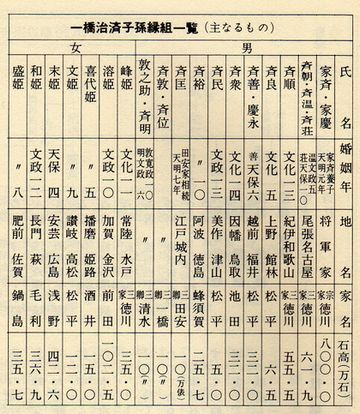 一橋治済子孫縁組一覧(主なるもの)
男
女
氏名 婚姻年 地名 家名 石高(万石)
家斉・家慶 家斉養子 天明元年 将軍家 宗家徳川 八〇〇・〇
斉朝・斉温・斉荘 温文政五 荘天保一〇 尾張名古屋 三家徳川 六一・九
斉順 文化一三 紀伊和歌山 三家徳川 五五・五
斉良 文化五 上野館林 松平 六・五
斉善・慶永 善天保六 越前福井 松平 三二・〇
斉衆 文化四 因幡鳥取 池田 三二・〇
斉民 文化一四 美作津山 松平 一〇・〇
斉裕 〃一〇 阿波徳島 蜂須賀 二五・七
斉匡 田安家相続 天明七年 江戸城内 三卿田安 一〇(万俵)
斉敦・斉位 〃 三卿一橋 一〇(〃)
敦之助・斉明 敦寛政一〇 明文政六 〃 三卿清水 一〇(〃)
峰姫 文化一一 常陸水戸 三家徳川 三五・〇
溶姫 文政一〇 加賀金沢 前田 一〇二・五
喜代姫 〃五 播磨姫路 酒井 一五・〇
文姫 〃九 讃岐高松 松平 一二・〇
末姫 天保四 安芸広島 浅野 四二・六
和姫 文政一二 長門萩 毛利 三六・九
盛姫 〃八 肥前佐賀 鍋島 三五・七